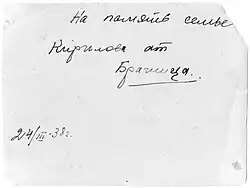 На память семье
Кирилова от
Брагинца.
24/III-38г.